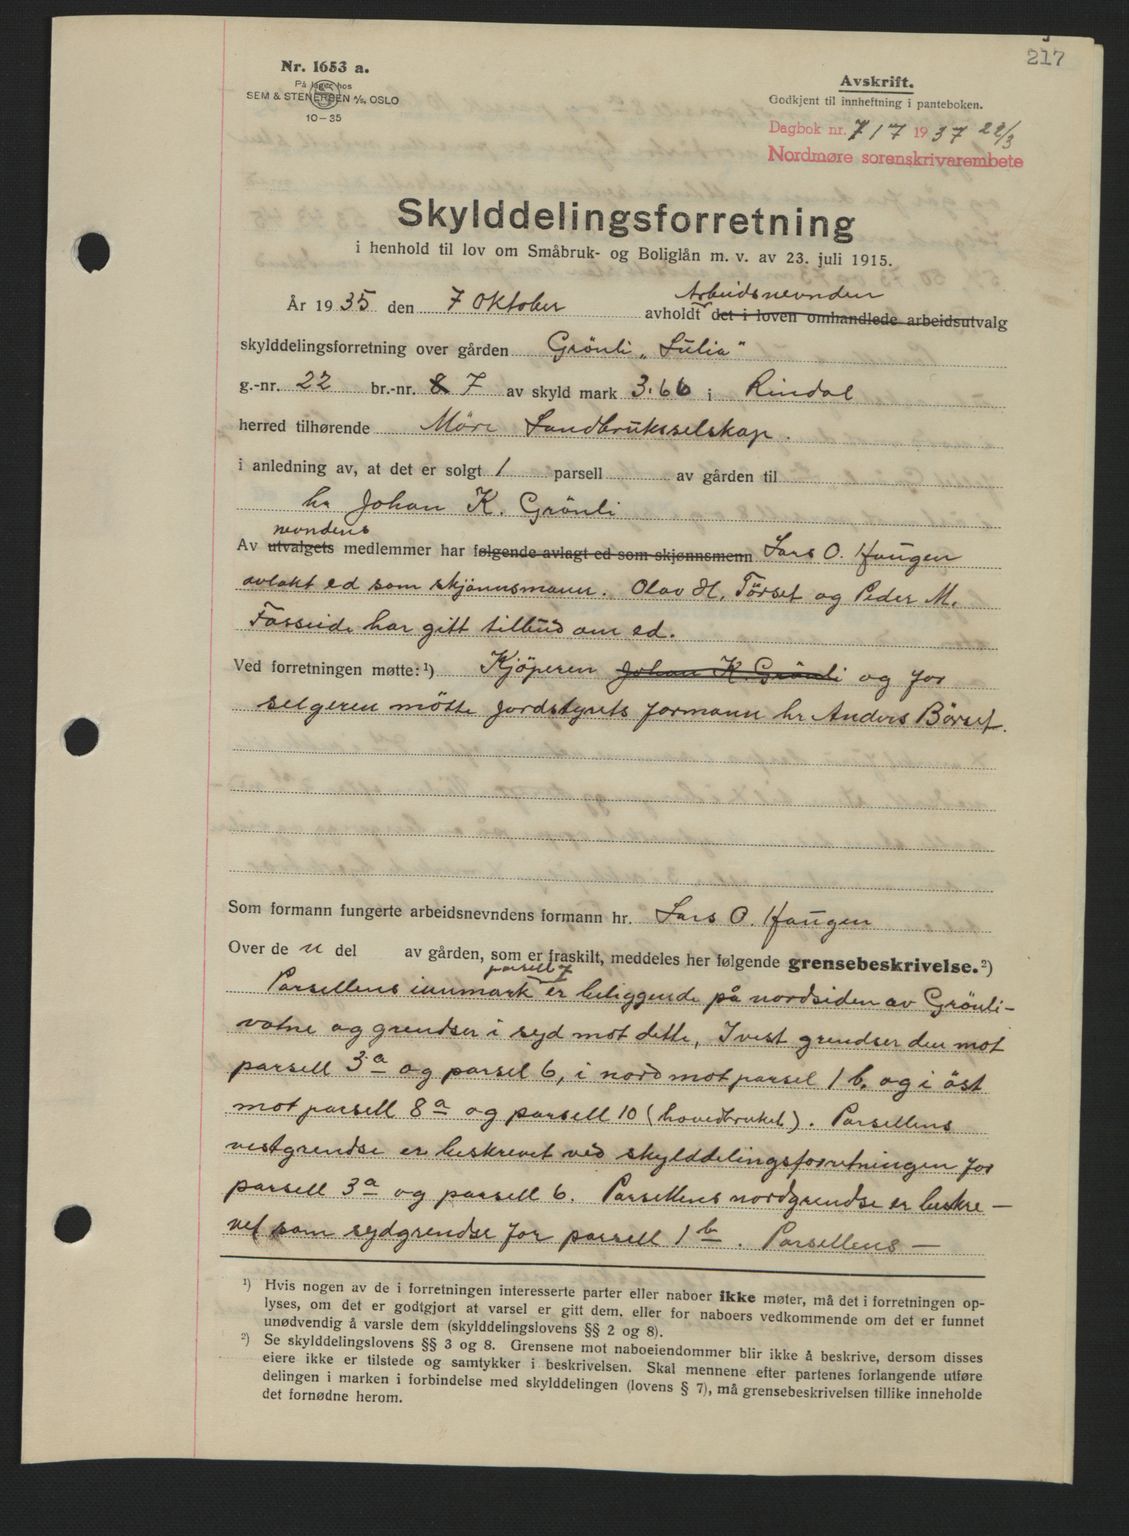 217
Nr. 1653 a.
På lager hos
SEM & STENERSEN A/S, OSLO
10-35
Avskrift.
Godkjent til innheftning i panteboken.
Dagbok nr. 717 1937 22/3
Nordmøre sorenskrivarembete
Skylddelingsforretning
i henhold til lov om Småbruk- og Boliglån m. v. av 23. juli 1915.
Arbeidsnevnden
År 1935 den 7 Oktober avholdt det i loven omhandlede arbeidsutvalg
skylddelingsforretning over gården Grönli "Sülia"
g.-nr. 22 br.-nr. 8 7 av skyld mark 3.66 i Rindal
herred tilhørende Möre Landbruksselskap.
i anledning av, at det er solgt 1 parsell av gården til
hr Johan K. Grönli
nevndens
Av utvalgets medlemmer har følgende avlagt ed som skjønnsmenn Lars O. Haugen
avlakt ed som skjönnsmann. Olav H. Törset og Peder M.
Fosseide har gitt tilbud om ed.
Ved forretningen møtte: ¹) Kjöperen Johan K. Grönli og for
selgeren mötte jordstyrets formann hr Anders Börset.
Som formann fungerte arbeidsnevndens formann hr. Lars O. Haugen
Over de n del av gården, som er fraskilt, meddeles her følgende grensebeskrivelse.²)
parsell 7
Parsellens innmark er beliggende på nordsiden av Grönli-
votne og grendser i syd mot dette, I vest grendser den mot
parsell 3a og parsel 6, i nord mot parsel 1 b. og i öst
mot parsell 8a og parsell 10 (hovedbruket). Parsellens
vestgrendse er beskrevet ved skylddelingsforretningen for
parsell 3a og parsell 6. Parsellens nordgrendse er beskre-
vet som sydgrendse for parsell 1b. Parsellens —
¹) Hvis nogen av de i forretningen interesserte parter eller naboer ikke møter, må det i forretningen op-
lyses, om det er godtgjort at varsel er gitt dem, eller for naboers vedkommende om det er funnet
unødvendig å varsle dem (skylddelingslovens §§ 2 og 8).
²) Se skylddelingslovens §§ 3 og 8. Grensene mot naboeiendommer blir ikke å beskrive, dersom disses
eiere ikke er tilstede og samtykker i beskrivelsen. Skal mennene efter partenes forlangende utføre
delingen i marken i forbindelse med skylddelingen (lovens § 7), må grensebeskrivelsen tillike inneholde
det fornødne herom.